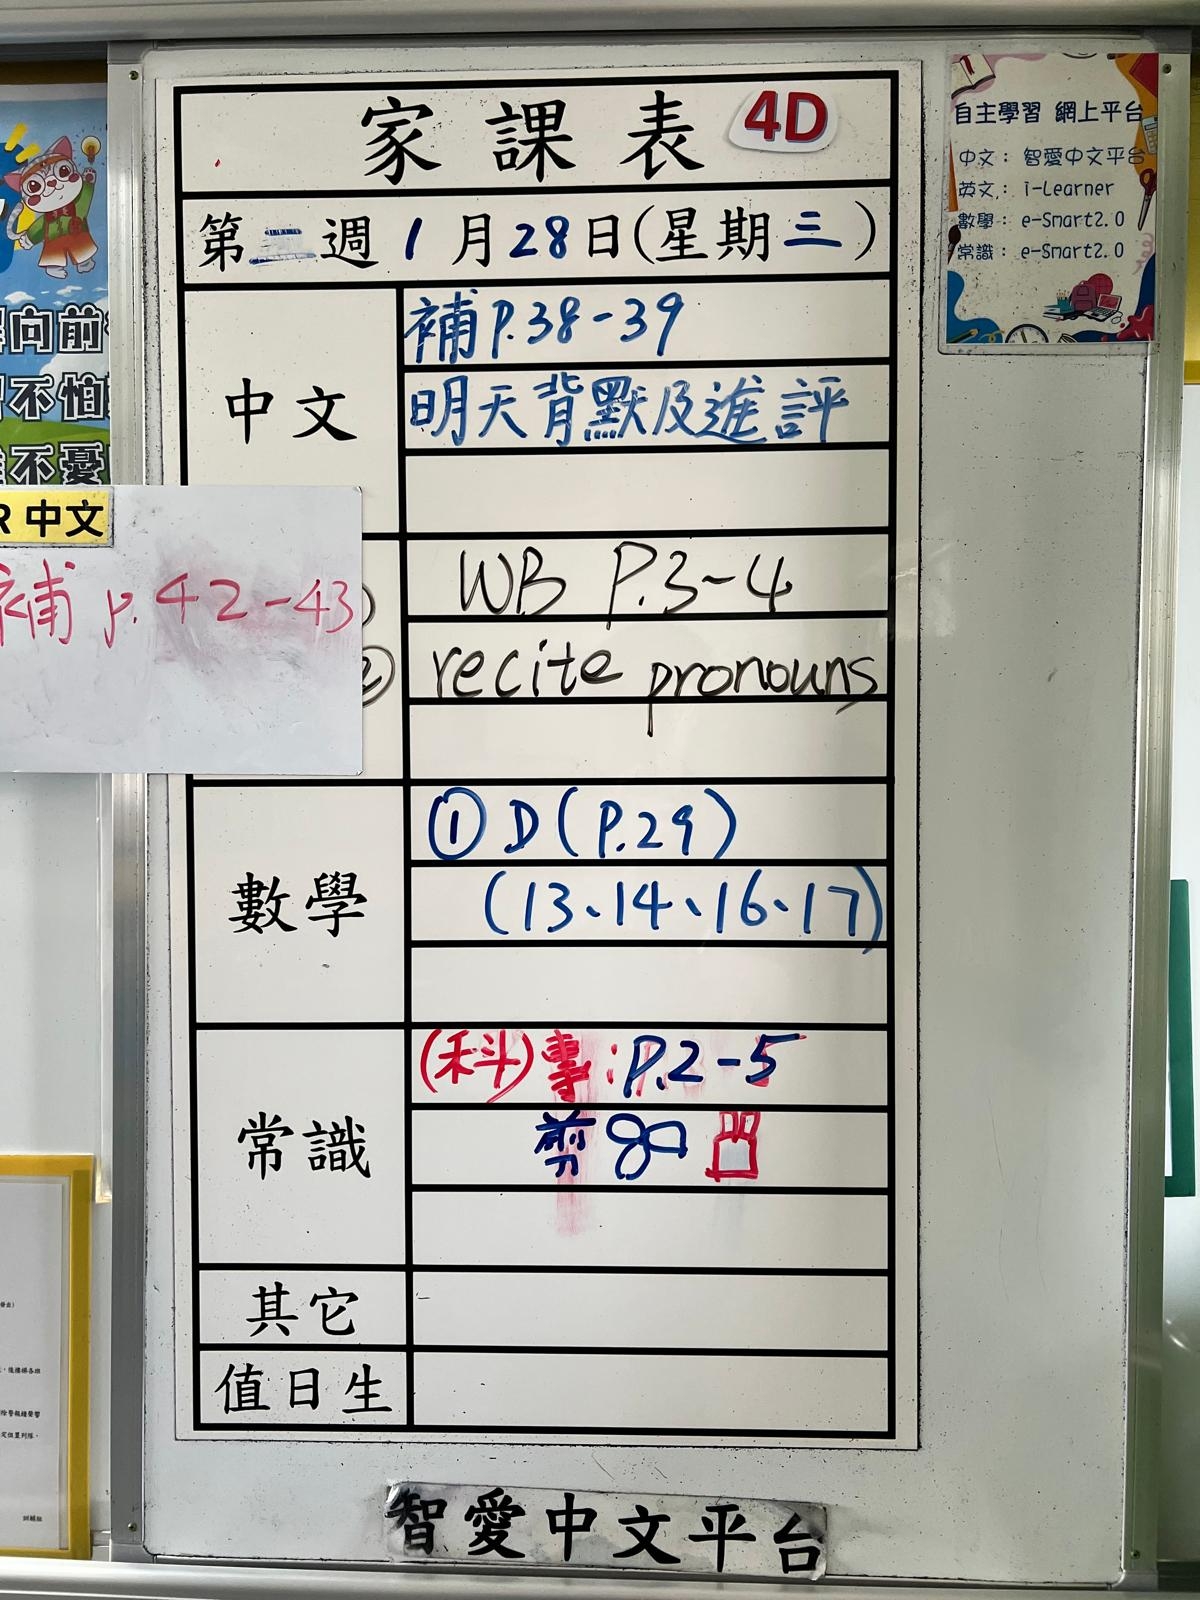 家課表 4D
第二週 1月28日(星期三)
中文
補 P.38-39
明天背默及進評
中文
補 p. 42-43
WB P.3~4
② recite pronouns
數學
① D (P.29)
(13、14、16、17)
常識
(科)專: P.2-5
剪
其它
值日生
智愛中文平台
自主學習 網上平台
中文： 智愛中文平台
英文： i-Learner
數學： e-Smart2.0
常識： e-Smart2.0
向前
不怕
不憂